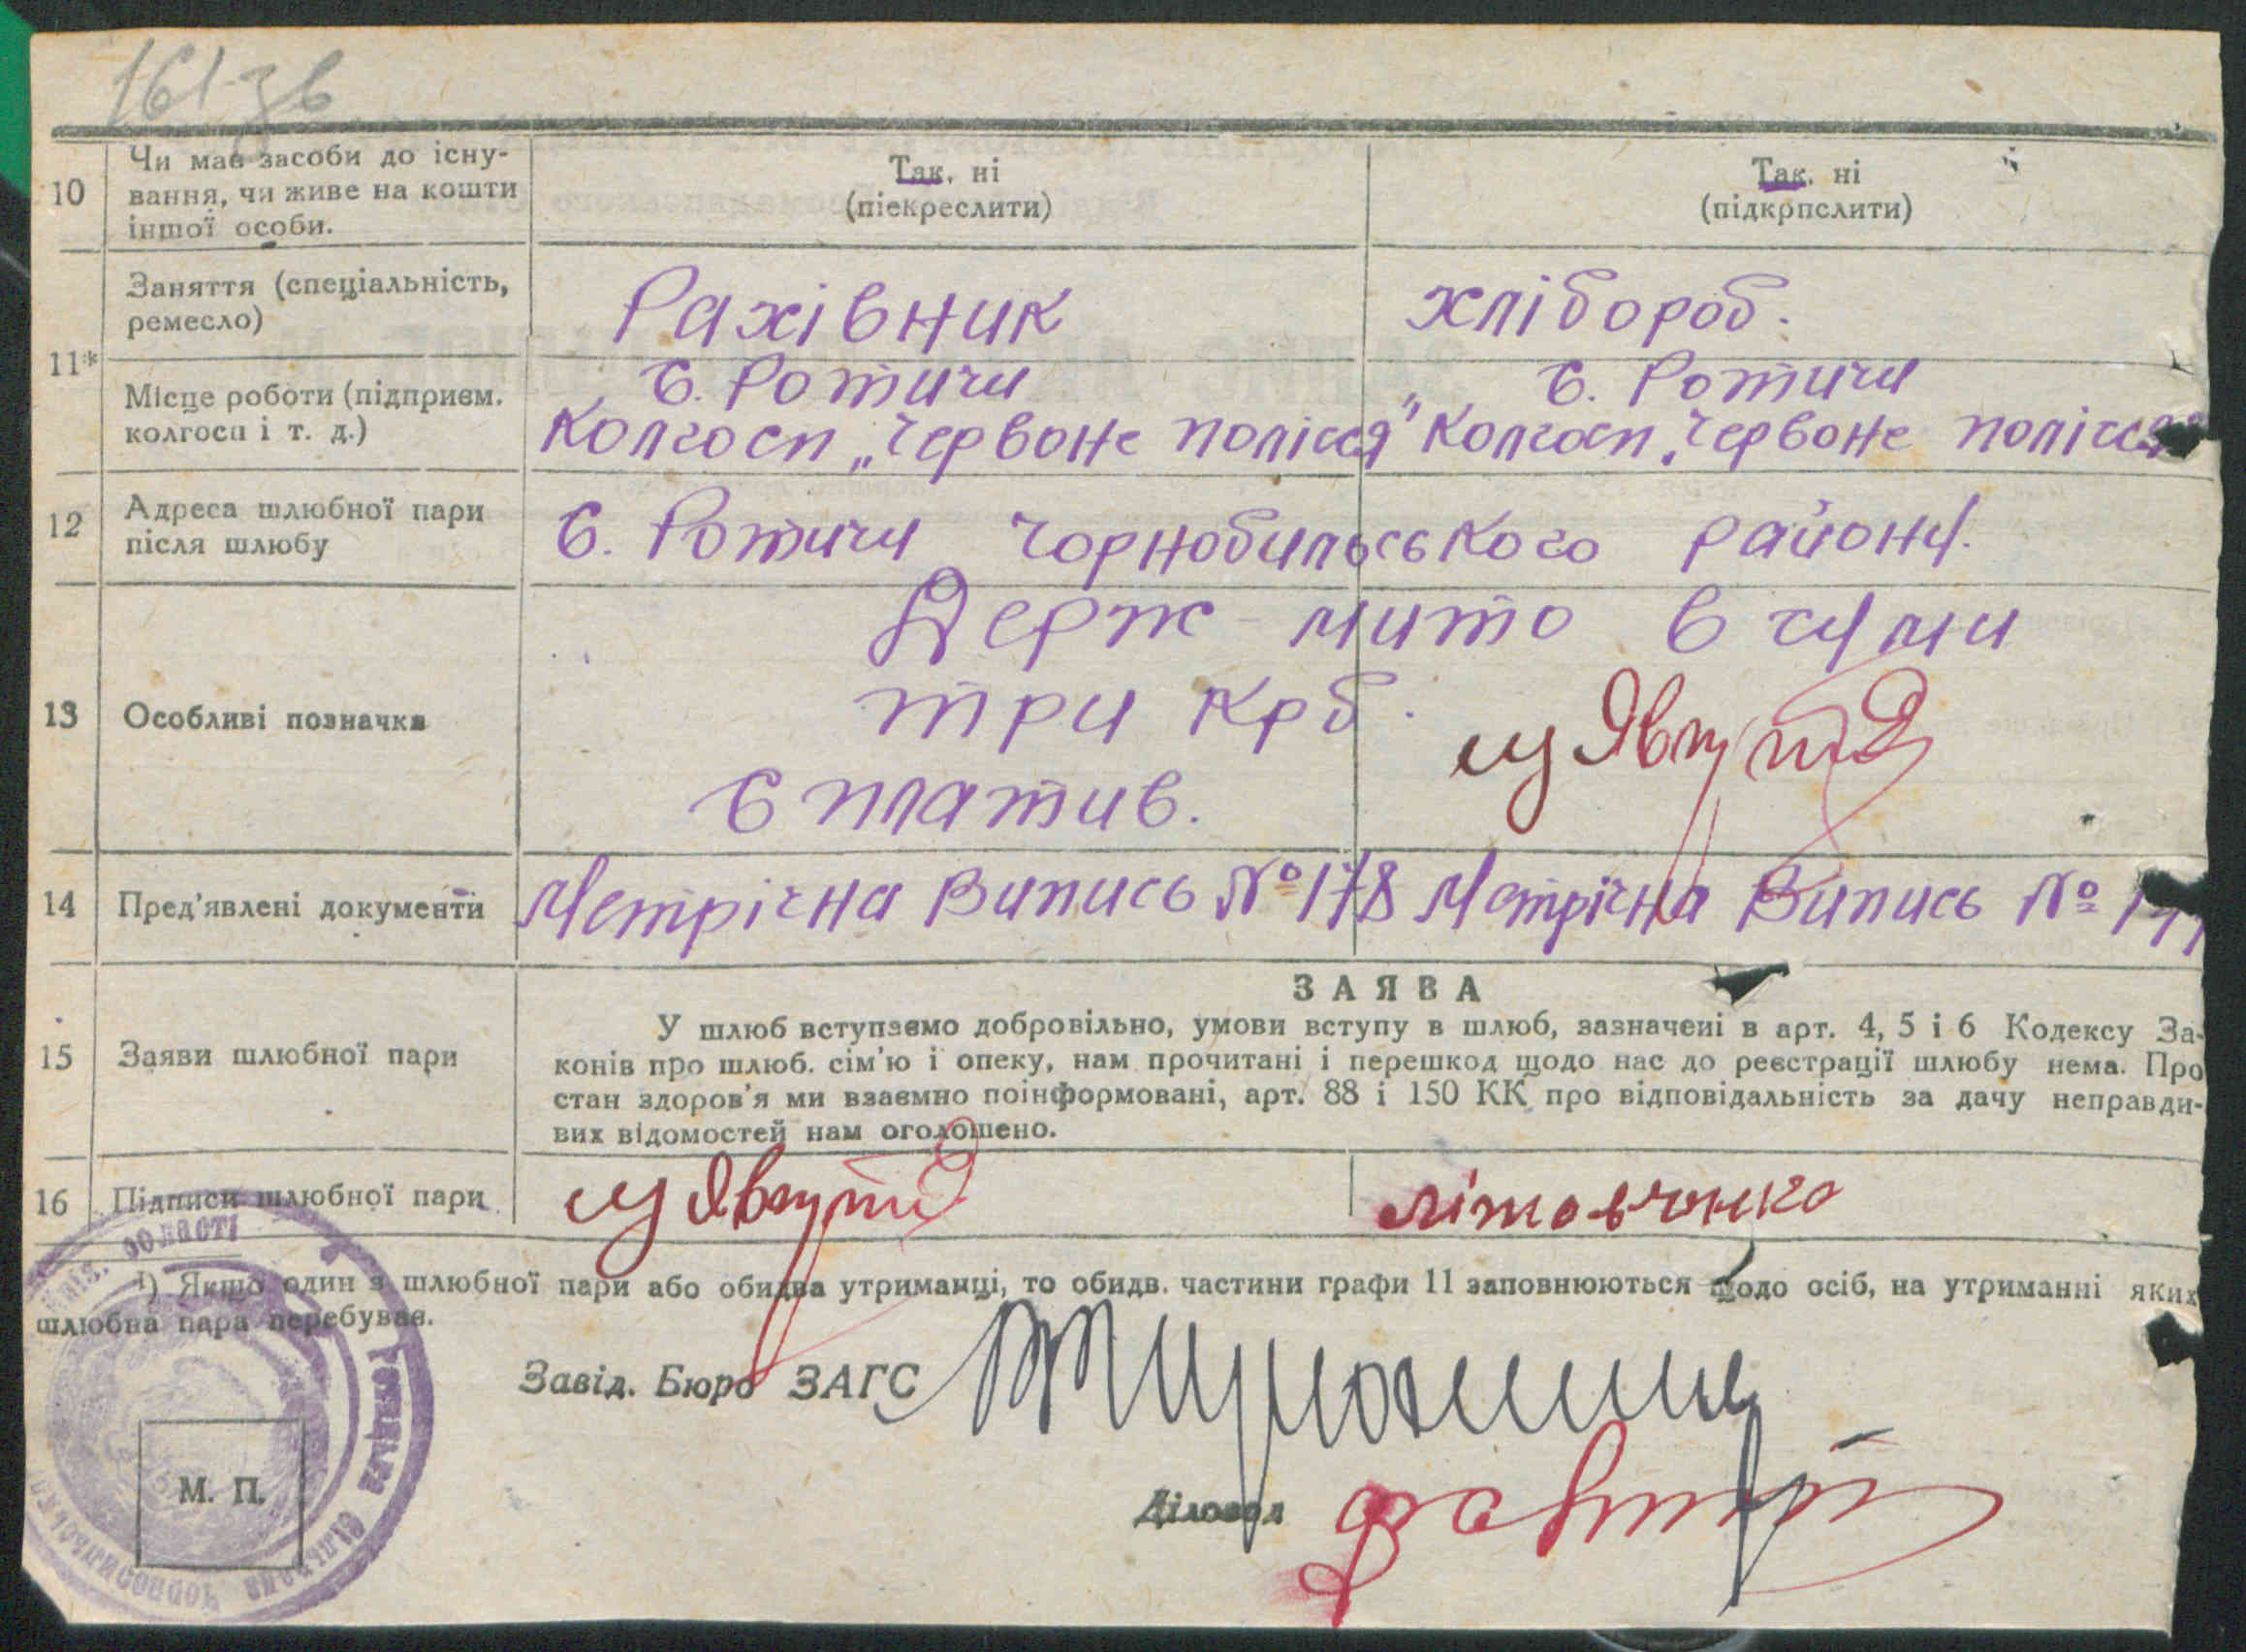 161-зв
10 Чи має засоби до існу-
вання, чи живе на кошти
іншої особи.
Так, ні
(піекреслити)
Так, ні
(підкрпслити)
11*
Заняття (спеціальність,
ремесло)
Рахівник
хлібороб.
Місце роботи (підприєм.
колгосп і т. д.)
с. Ротичи
Колгосп „Червоне полісся"
с. Ротичи
Колгосп „Червоне полісся
12 Адреса шлюбної пари
після шлюбу
С. Ротичи Чорнобильського району.
13 Особливі позначки
Держ-мито в суми
три крб.
сплатив.
14 Пред'явлені документи
Метрічна Випись № 178
Метрічна Випись №
15 Заяви шлюбної пари
ЗАЯВА
У шлюб вступаємо добровільно, умови вступу в шлюб, зазначені в арт. 4, 5 і 6 Кодексу За-
конів про шлюб. сім'ю і опеку, нам прочитані і перешкод щодо нас до реєстрації шлюбу нема. Про
стан здоров'я ми взаємно поінформовані, арт. 88 і 150 КК про відповідальність за дачу неправди-
вих відомостей нам оголошено.
16 Підписи шлюбної пари
літовченко
¹) Якщо один з шлюбної пари або обидва утриманці, то обидв. частини графи 11 заповнюються щодо осіб, на утриманні яких
шлюбна пара перебуває.
Завід. Бюро ЗАГС
Діловод
М. П.
області
Ротицька сільська